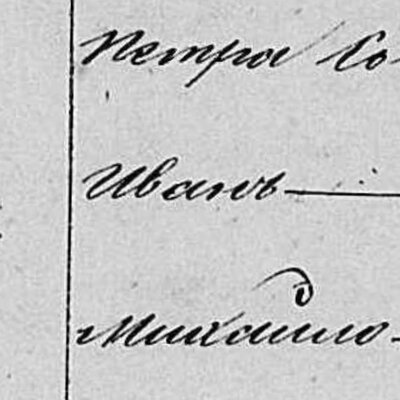 Петра Со
Иванъ
Михайло